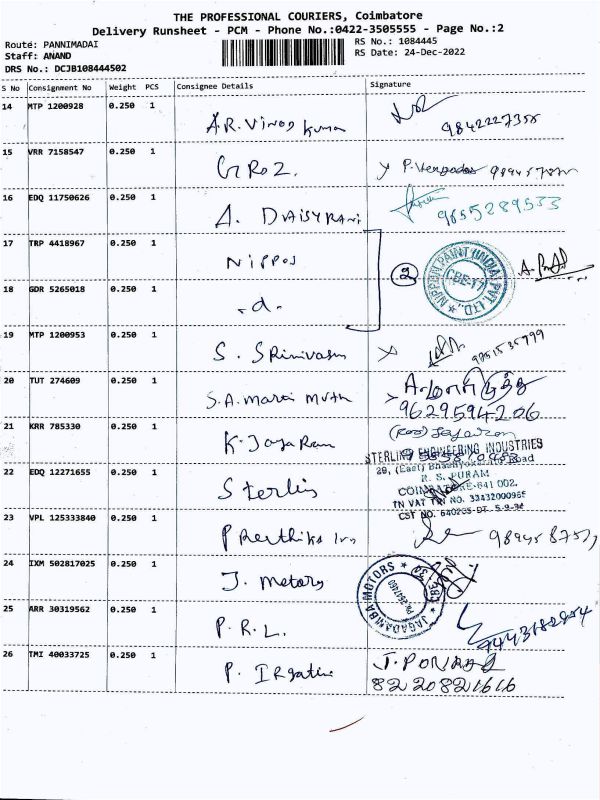 THE PROFESSIONAL COURIERS, Coimbatore
Delivery Runsheet - PCM - Phone No.:0422-3505555 - Page No.:2
Route: PANNIMADAI
RS No.: 1084445
Staff: ANAND
RS Date: 24-Dec-2022
DRS No.: DCJB108444502
S No Consignment No Weight PCS Consignee Details Signature
14 MTP 1200928 0.250 1 A.R. Vinod Kumar 9842227358
15 VRR 7158547 0.250 1 GROZ. P. Venga
16 EDQ 11750626 0.250 1 A. DAISYRANI 9655289533
17 TRP 4418967 0.250 1 NIPPOS
2 NIPPON PAINT (INDIA) PVT. LTD., CBE-17
18 GDR 5265018 0.250 1 -d-
19 MTP 1200953 0.250 1 S. SRinivasan
20 TUT 274609 0.250 1 S.A. Mari Muthu
9629594206
21 KRR 785330 0.250 1 K. Jaya Ram
STERLING ENGINEERING INDUSTRIES
29, (East) Bhashyakaralu Road
R. S. PURAM
COIMBATORE-641 002.
TN VAT TIN NO. 33432000965
CST NO. 640235 DT. 5-9-
22 EDQ 12271655 0.250 1 Sterling
23 VPL 125333840 0.250 1
24 IXM 502817025 0.250 1 J. Motors
JAGADAMBA MOTORS
25 ARR 30319562 0.250 1 P.R.L.
9443182904
26 TMI 40033725 0.250 1 P. J. PONRAJ
8220821616